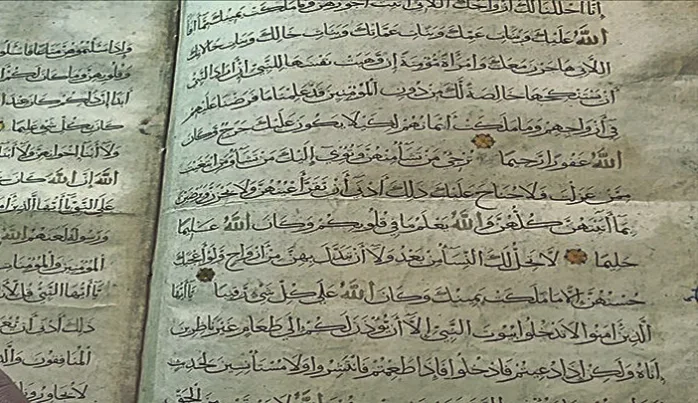 إنا أحللنا لك أزواجك اللاتي آتيت أجورهن وما ملكت يمينك مما أفا
الله عليك وبنات عمك وبنات عماتك وبنات خالك وبنات خالاتك
اللاتي هاجرن معك وامرأة مؤمنة إن وهبت نفسها للنبي إن أراد النبي
أن يستنكحها خالصة لك من دون المؤمنين قد علمنا ما فرضنا عليهم
في أزواجهم وما ملكت أيمانهم لكيلا يكون عليك حرج وكان
الله غفورا رحيما ترجي من تشاء منهن وتؤوي إليك من تشاء ومن ابتغيت
ممن عزلت ولا جناح عليك ذلك أدنى أن تقر أعينهن ولا يحزن ويرضين
بما آتيتهن كلهن والله يعلم ما في قلوبكم وكان الله عليما
حليما لا يحل لك النساء من بعد ولا أن تبدل بهن من أزواج ولو أعجبك
حسنهن إلا ما ملكت يمينك وكان الله على كل شيء رقيبا يا أيها
الذين آمنوا لا تدخلوا بيوت النبي إلا أن يؤذن لكم إلى طعام غير ناظرين
إناه ولكن إذا دعيتم فادخلوا فإذا طعمتم فانتشروا ولا مستأنسين لحديث
وإذا سألتموهن متاعا
وقلوبهن وما كان لكم
أبدا إن ذلكم كان عند
كان بكل شيء عليما
ولا أبنا إخوانهن ولا أبنا
الله إن الله كان
على النبي يا أيها الذين
ورسوله لعنهم الله
المؤمنين والمؤمنات
يا أيها النبي قل
ذلك أدنى أن
المنافقون